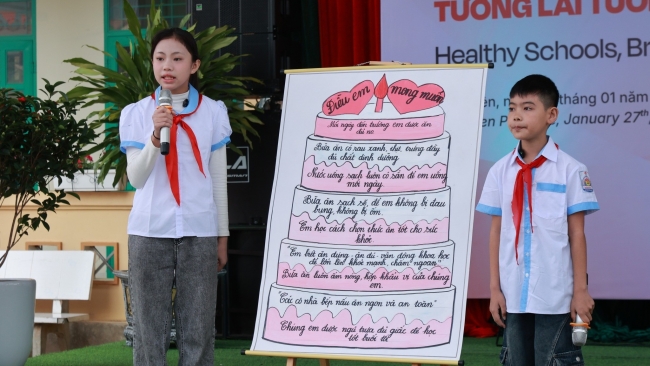 TƯƠNG LAI TƯƠ
Healthy Schools, Br
ên, n
tháng 01 năm
en P
January 27th,
Điều em mong muốn
Mỗi ngày đến trường em được ăn
đủ no
Bữa ăn có rau xanh, thịt, trứng đầy
đủ chất dinh dưỡng
Nước uống sạch luôn có sẵn để em uống
mỗi ngày
Bữa ăn sạch sẽ, để em không bị đau
bụng, không bị ốm
Em học cách chọn thức ăn tốt cho sức
khỏe
"Em biết ăn đúng - ăn đủ - vận động khoa học
để lớn lên khỏe mạnh, chăm ngoan"
Bữa ăn luôn ấn nóng, hợp khẩu vị của chúng
em
"Các cô nhà bếp nấu ăn ngon và an toàn"
Chúng em được ngủ trưa đủ giấc để học
tốt buổi chiều